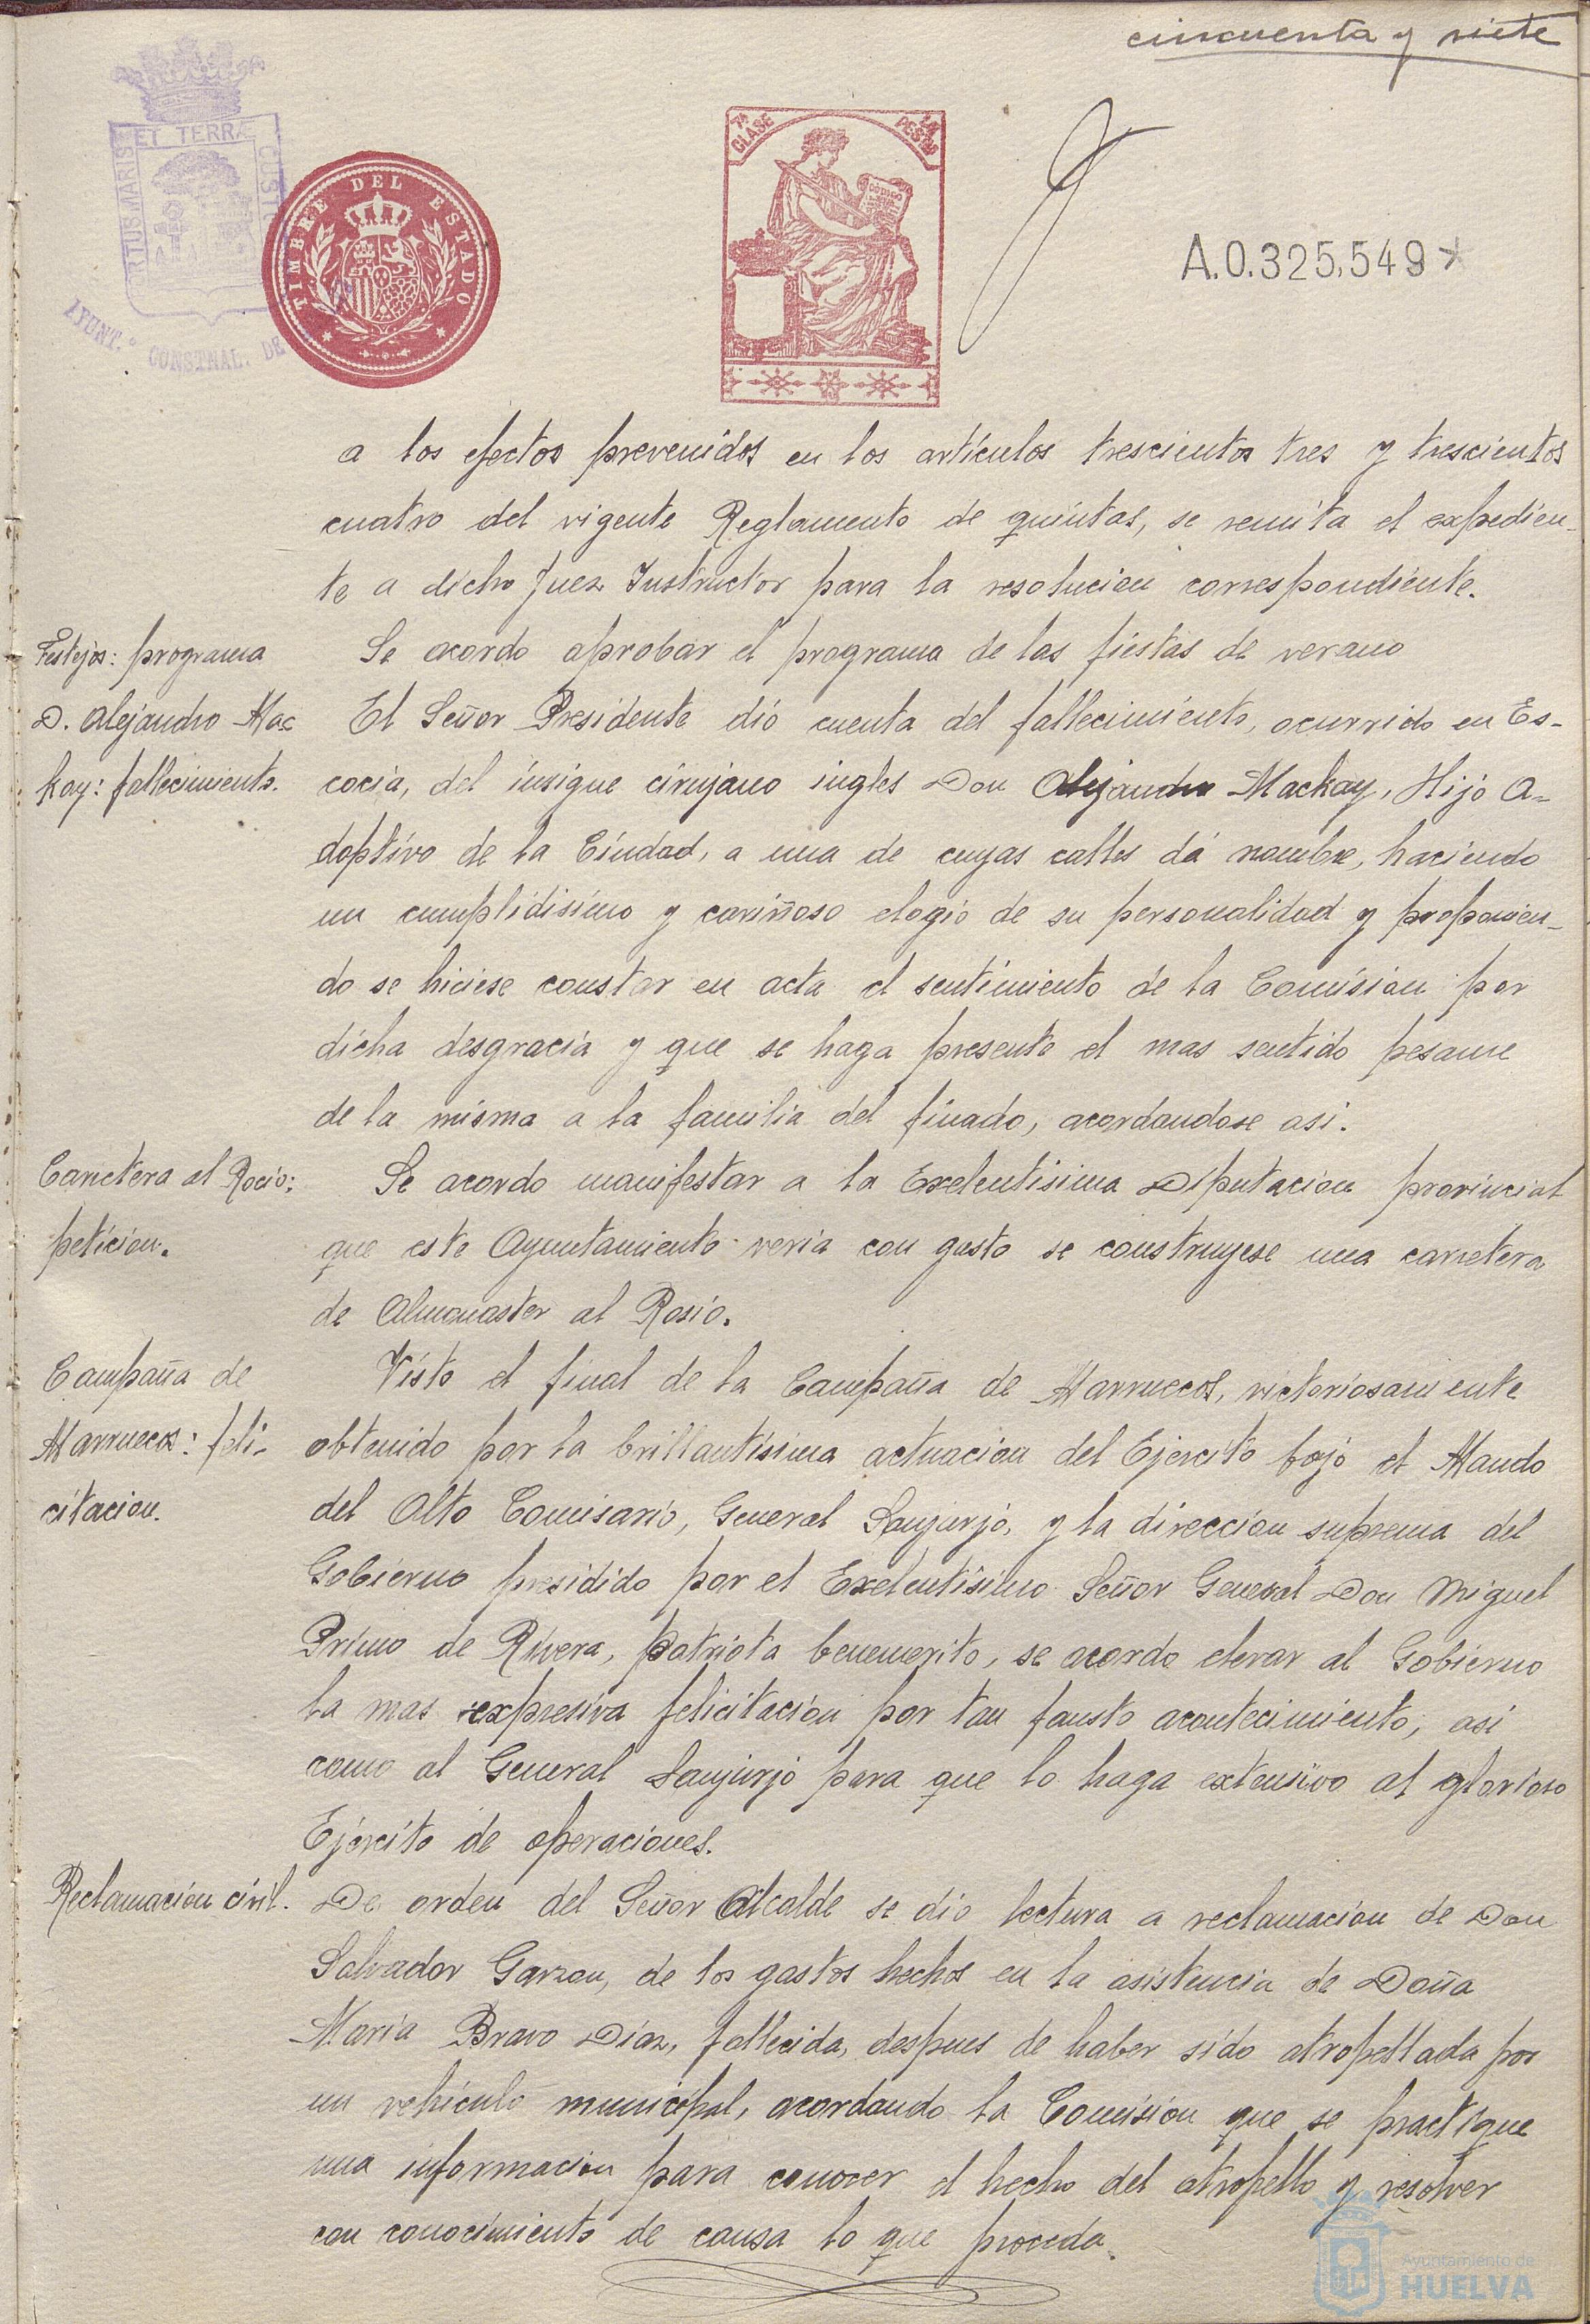 cincuenta y siete
ET TERRÆ
RTUS MARIS
CUSTO
AYUNT.º CONSTNAL. DE
TIMBRE DEL ESTADO
7ª CLASE
PESTAS
CÓDIGO
A.0.325,549*
a los efectos prevenidos en los artículos trescientos tres y trescientos
cuatro del vigente Reglamento de quintas, se remita el expedien-
te a dicho Juez Instructor para la resolucion correspondiente.
Festejos: programa
Se acordo aprobar el programa de las fiestas de verano
D. Alejandro Mac
kay: fallecimiento.
El Señor Presidente dió cuenta del fallecimiento, ocurrido en Es-
cocia, del insigne cirujano ingles Don Alejandro Mackay, Hijo A-
doptivo de la Ciudad, a una de cuyas calles dá nombre, haciendo
un cumplidisimo y cariñoso elogio de su personalidad y proponien-
do se hiciese constar en acta el sentimiento de la Comision por
dicha desgracia y que se haga presente el mas sentido pesame
de la misma a la familia del finado, acordandose asi.
Carretera al Rocio:
peticion.
Se acordo manifestar a la Exelentisima Diputacion provincial
que este Ayuntamiento veria con gusto se construyese una carretera
de Almonaster al Rosio.
Campaña de
Marruecos: feli-
citacion.
Visto el final de la Campaña de Marruecos, victoriosamente
obtenido por la brillantísima actuacion del Ejercito bajo el Mando
del Alto Comisario, General Sanjurjo, y la direccion suprema del
Gobierno presidido por el Exelentísimo Señor General Don Miguel
Primo de Rivera, patriota benemerito, se acordo elevar al Gobierno
la mas expresiva felicitación por tan fausto acontecimiento, asi
como al General Sanjurjo para que lo haga extensivo al glorioso
Ejército de operaciones.
Reclamación civil.
De orden del Señor Alcalde se dio lectura a reclamacion de Don
Salvador Garzon, de los gastos hechos en la asistencia de Doña
Maria Bravo Diaz, fallecida, despues de haber sido atropellada por
un vehiculo municipal, acordando la Comision que se practique
una informacion para conocer el hecho del atropello y resolver
con conocimiento de causa lo que proceda.
Ayuntamiento de
HUELVA